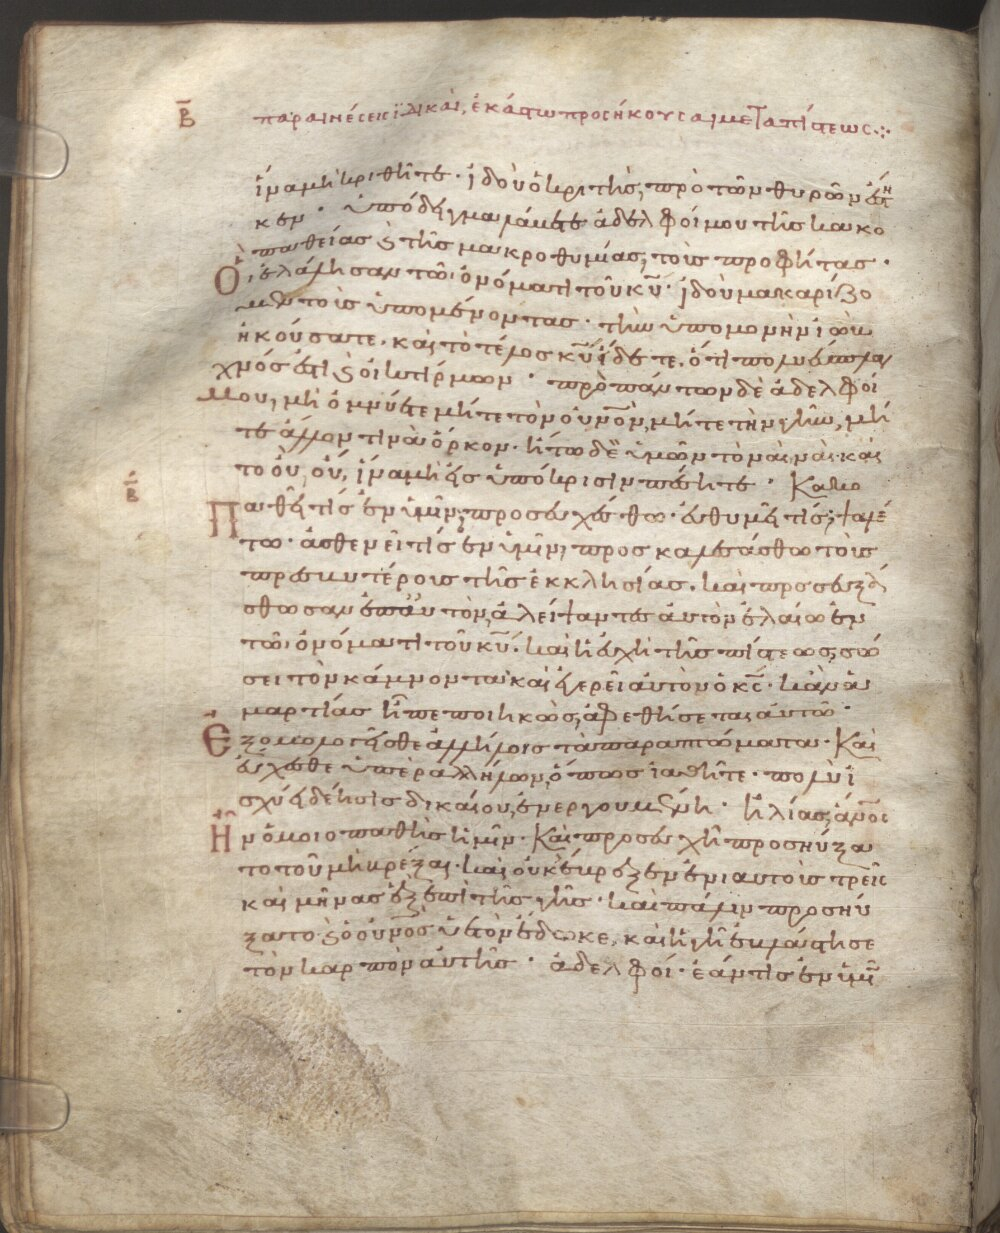 Β̅ παραινέσεις ϊδικαὶ, ἑκάστω προσήκουσαι μετὰ πίστεως ·:·
ἵνα μὴ κριθῆτε · ἰδοὺ ὁ κριτὴς, πρὸ τῶν θυρῶν ἕστη
κεν · ὑπόδειγμα λάβετε ἀδελφοί μου τῆς κακο
παθείας ϗ τῆς μακροθυμίας, τοὺς προφήτας ·
Οἳ, ἐλάλησαν τῶ ὀνόματι τοῦ κυ̅ · ἰδοὺ μακαρίζο
μεν τοὺς ὑπομένοντας · τὴν ὑπομονὴν ἰὼβ
ἠκούσατε, καὶ τὸ τέλος κυ̅ ἴδετε, ὅτι πολυέυσπλαγ
χνός ἐστι ϗ οἰκτίρμων · πρὸ πάντων δὲ ἀδελφοί
μου, μὴ ὀμνύετε μήτε τὸν οὐνο̅ν, μήτε τὴν γῆν, μή
τε ἄλλον τινὰ ὅρκον · ἤτω δὲ ὑμῶν τὸ ναὶ, ναὶ · καὶ
το οὒ, οὒ, ἵνα μὴ εἰς ὑπόκρισιν πέσητε · Κακο
Β̅
Παθεῖ τίς ἐν ὑμῖν; προσευχέσθω · εὐθυμεῖ τίς; ψαλλέ
τω · ἀσθενεῖ τίς ἐν ὑμῖν; προσκαλεσάσθω τοὺς
πρεσβυτέρους τῆς ἐκκλησίας, καὶ προσευξά
σθωσαν ἐπ' αυτὸν, ἀλείψαντες ἀυτὸν ἐλαίω ἐν
τῶ ὀνόματι τοῦ κυ̅ · καὶ ἡ ἐυχὴ τῆς πίστεως, σώ
σει τὸν κάμνοντα · καὶ ἐγερεῖ αυτὸν ὁ κς̅ · κἂν ἁ
μαρτίας ἦ πεποιηκὼς, ἀφεθήσεται ἀυτῶ ·
Ἐξομολογεῖσθε ἀλλήλοις τὰ παραπτώματα · Καὶ
ἔυχεσθε ὑπὲρ ἀλλήλων, ὅπως ἰαθῆτε · πολὺ ἰ
σχύει δέησις δικαίου, ἐνεργουμένη · ἠλίας, ἀνο̅ς
Ἦν ὁμοιοπαθὴς ἡμῖν · Καὶ προσευχῆ προσηύξα
το τοῦ μὴ βρέξαι · καὶ ουκ ἔβρεξεν ἐνιαυτοὺς τρεῖς
καὶ μῆνας ἓξ ἐπὶ τῆς γῆς · καὶ πάλιν προσηύ
ξατο · ϗ ὁ ουνο̅ς ὑετὸν ἔδωκε, καὶ ἡ γῆ ἐβλάστησε
τὸν καρπὸν ἀυτῆς · ἀδελφοί · ἐάν τις ἐν ὑμῖν